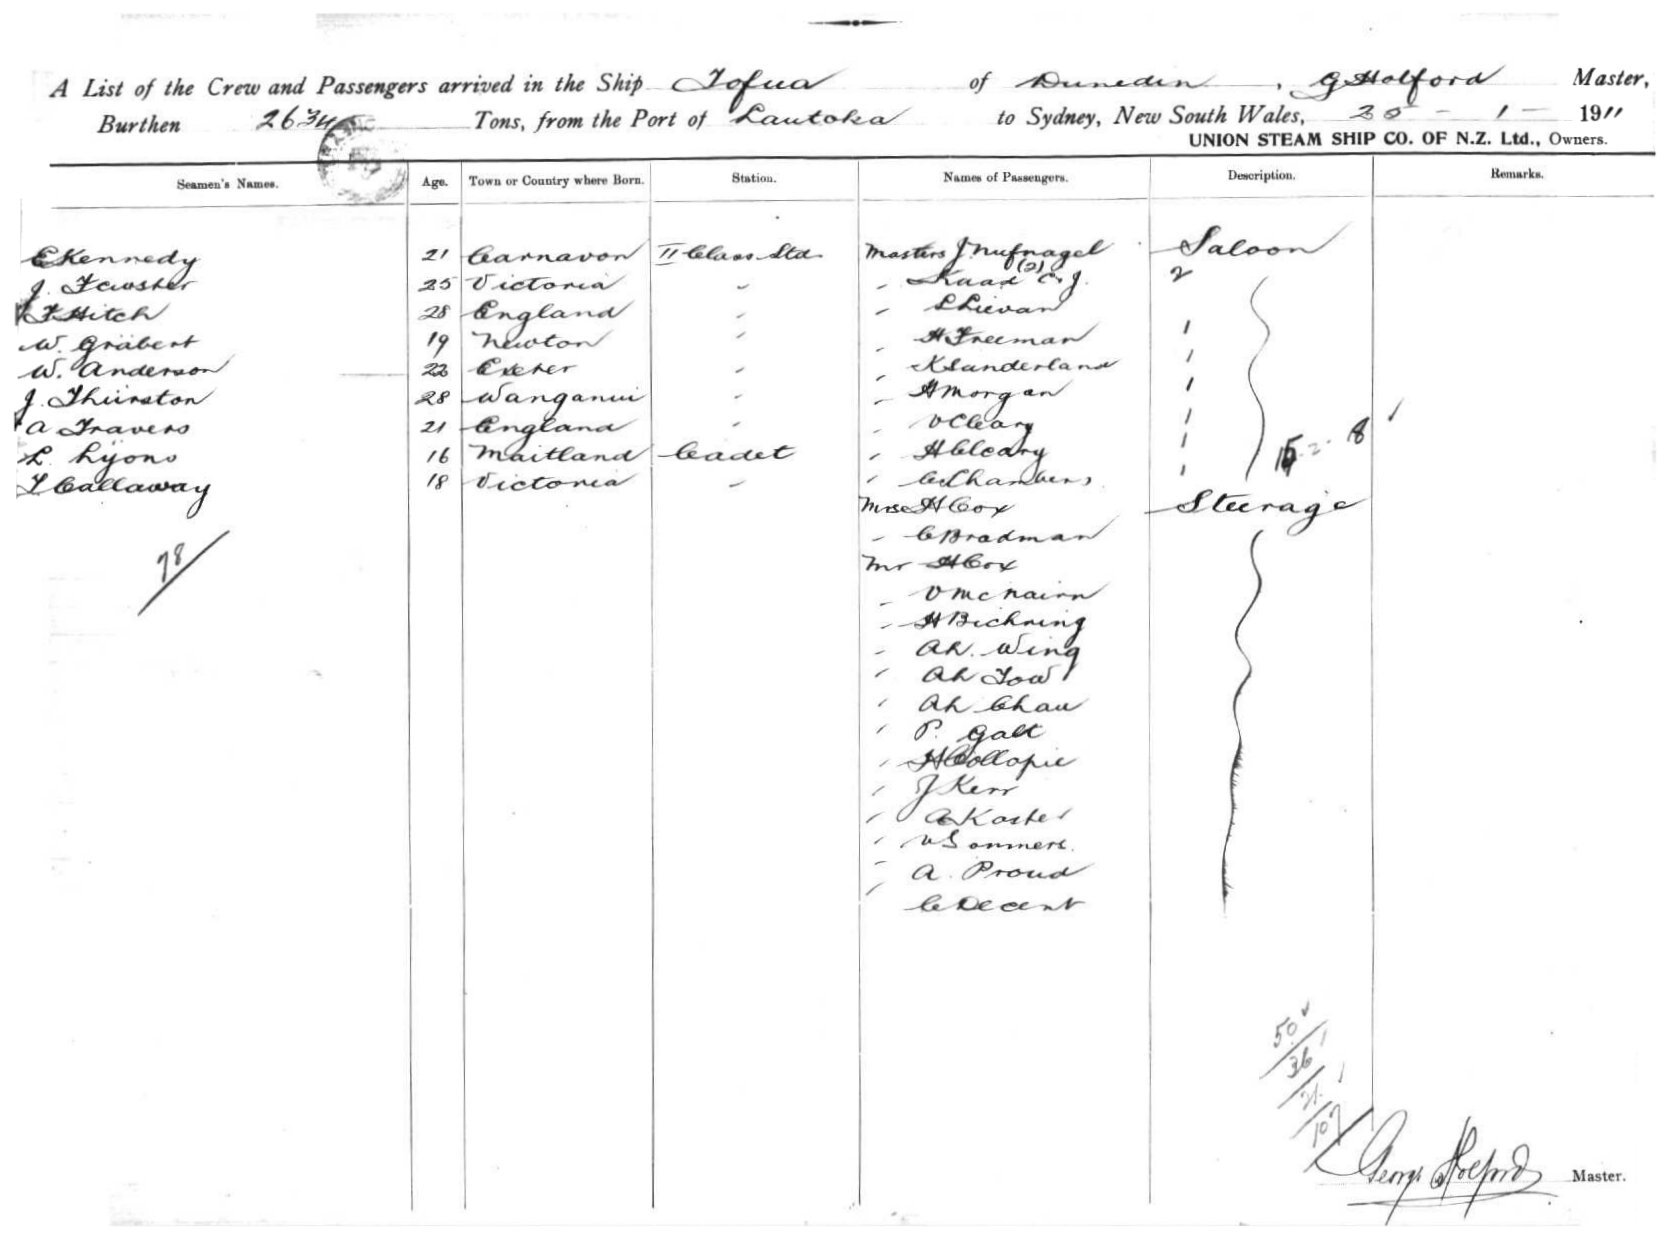 A List of the Crew and Passengers arrived in the Ship Tofua of Dunedin, G Holford Master,
Burthen 2634 Tons, from the Port of Lautoka to Sydney, New South Wales, 30 - 1 - 1911
UNION STEAM SHIP CO. OF N.Z. Ltd., Owners.
Seamen's Names. Age. Town or Country where Born. Station. Names of Passengers. Description. Remarks.
E Kennedy 21 Carnavon II Class Std. Masters J. Nufnagel Saloon
J. Fewster 25 Victoria " " Kaad C. J. (2) 2
F Hitch 28 England " " S Lievan
W. Grabert 19 Newton " " H Freeman 1
W. Anderson 22 Exeter " " K Sunderland 1
J. Thurston 28 Wanganui " " H Morgan 1
A Travers 21 England " " V Cleary 1
L. Lyons 16 Maitland Cadet " H Cleary 1 8
T Callaway 18 Victoria " " C Chambers 1
Mrs H Cox Steerage
" C Bradman
78 Mr H Cox
" V McNairn
" H Bichning
" Ah. Wing
" Ah Tow
" Ah Chau
" P. Galt
" H Collopie
" J Kerr
" A Koster
" W Sommers.
" A. Proud
" C Decent
50
36
21
107
George Holford Master.